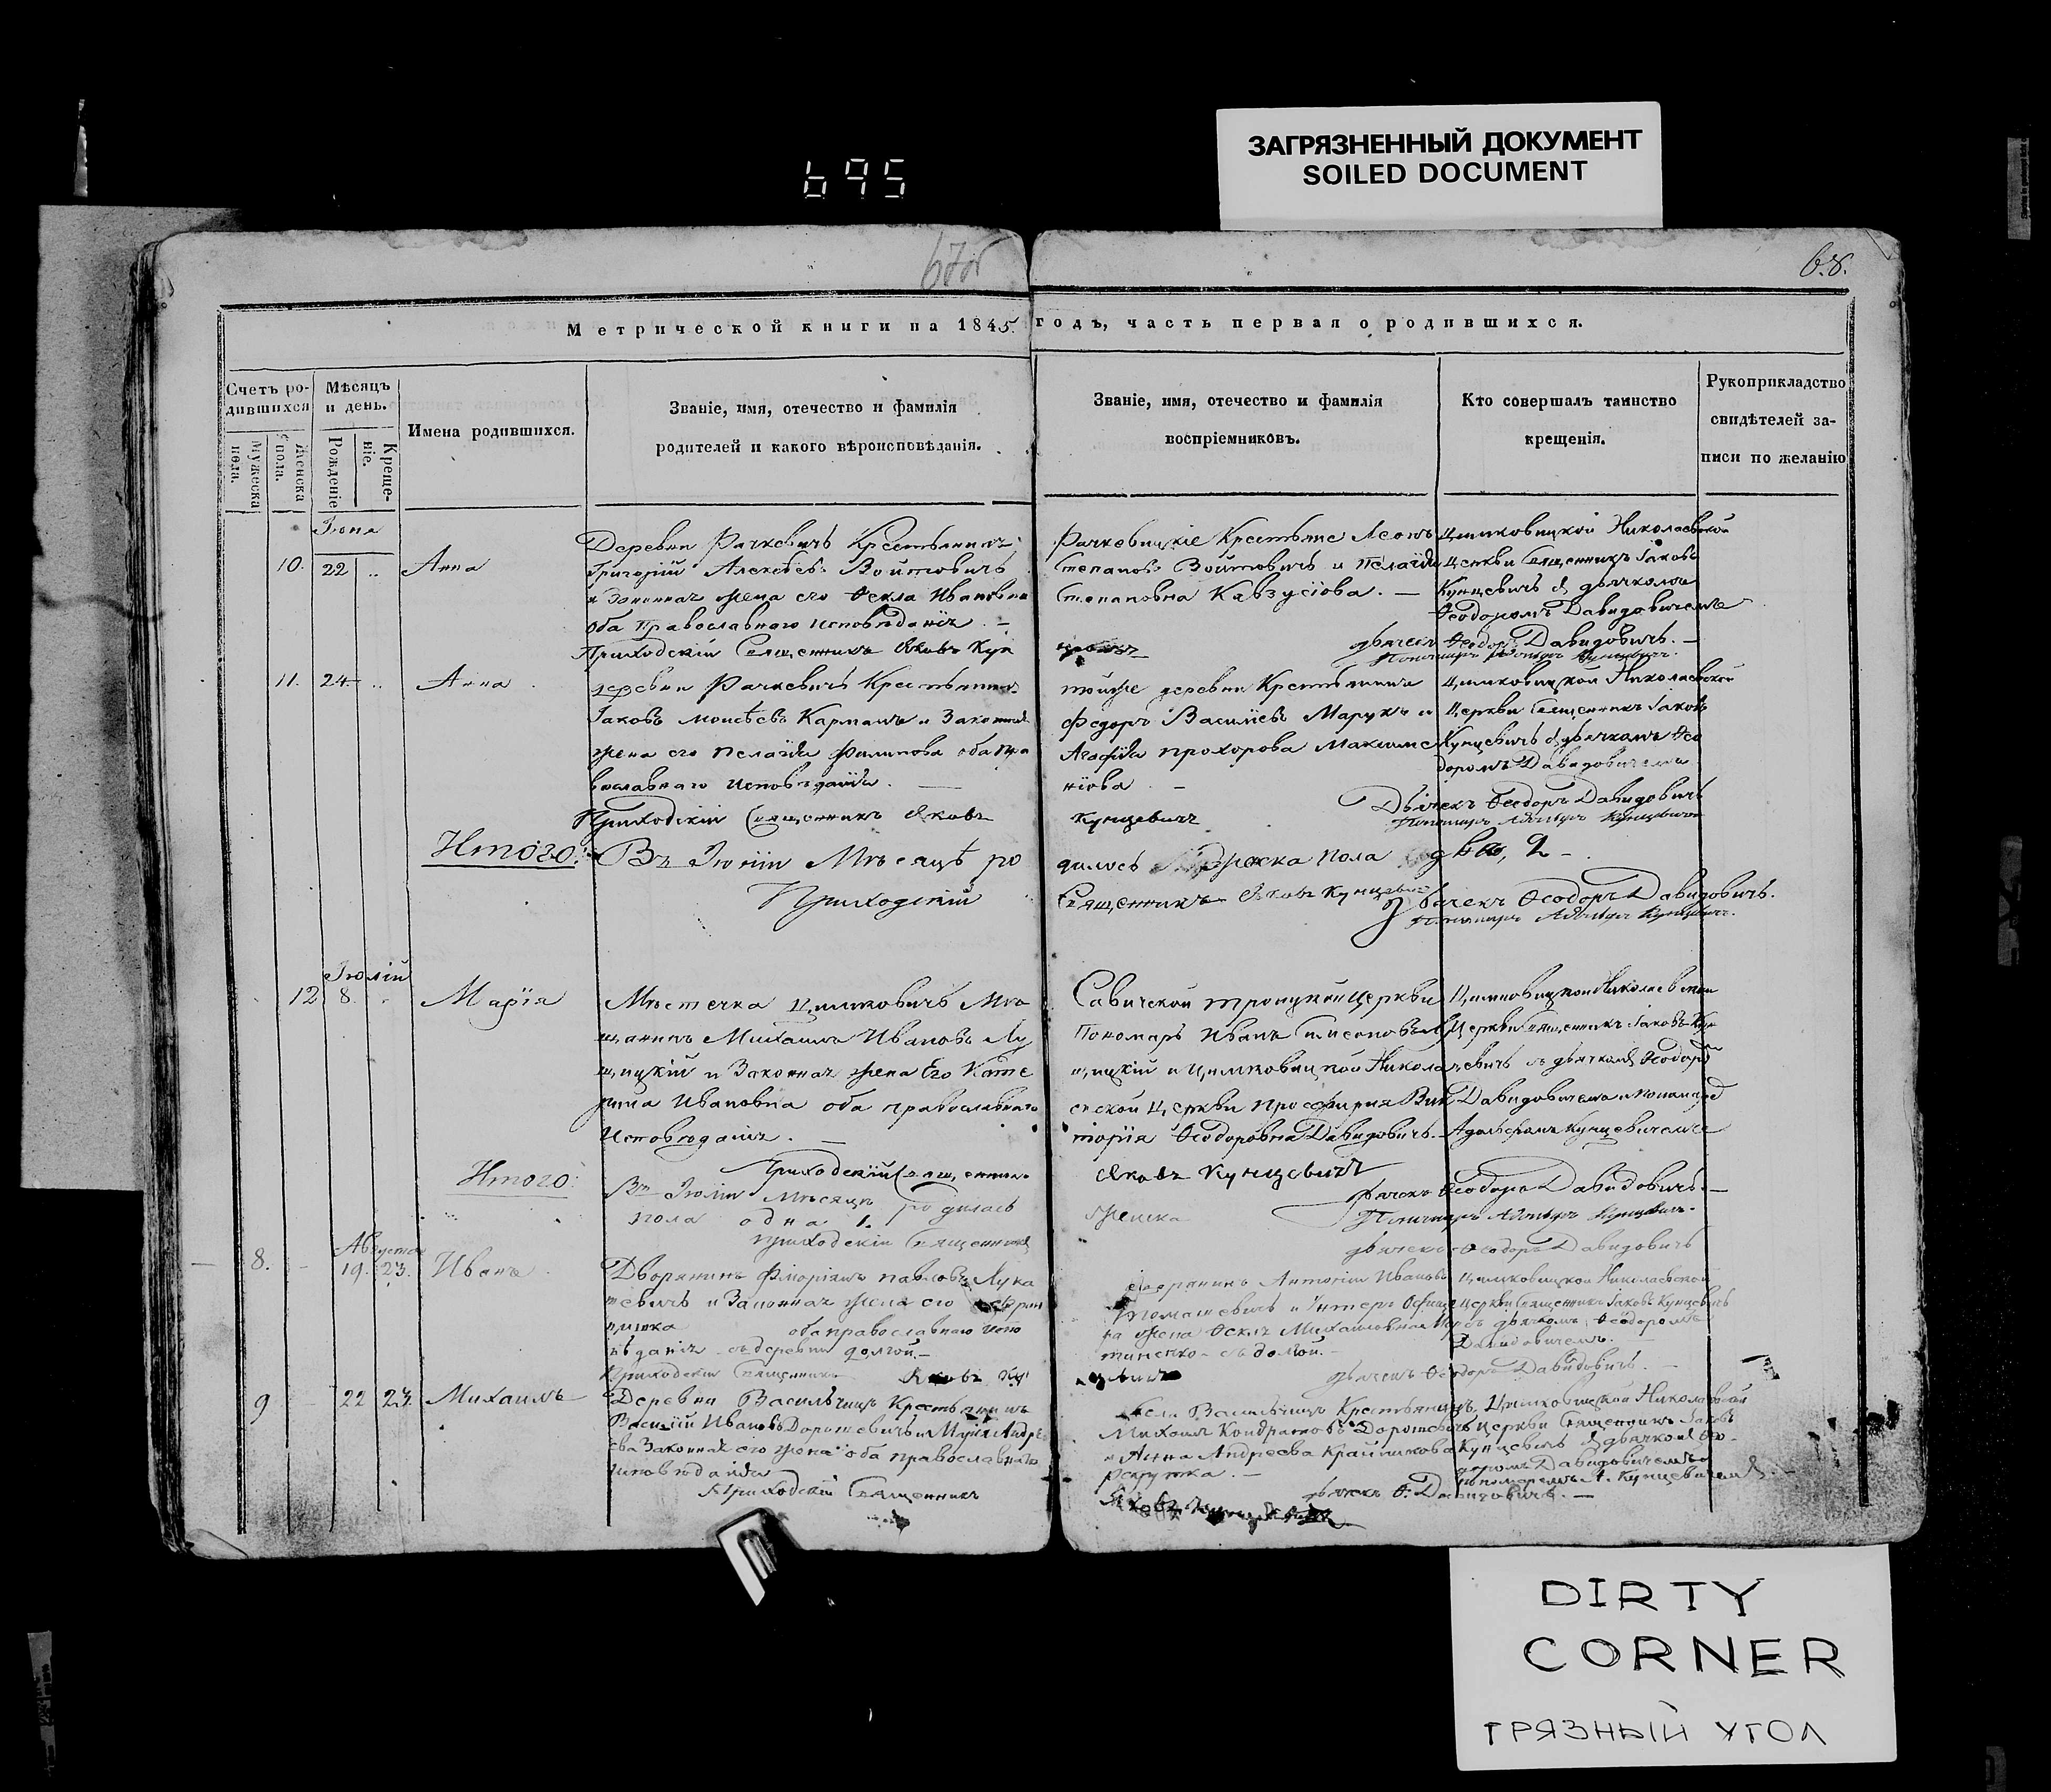 ЗАГРЯЗНЕННЫЙ ДОКУМЕНТ
SOILED DOCUMENT
695
68.
Метрической книги на 1845 годъ, часть первая о родившихся.
Счетъ ро-
дившихся
Мужеска
пола.
Женска
пола.
Мѣсяцъ
и день.
Рожденіе
Креще-
ніе.
Имена родившихся.
Званіе, имя, отечество и фамилія
родителей и какого вѣроисповѣданія.
Званіе, имя, отечество и фамилія
воспріемниковъ.
Кто совершалъ таинство
крещенія.
Рукоприкладство
свидѣтелей за-
писи по желанію
10.
22
Анна
Деревни Рачкевичъ Крестьянинъ
Григорій Алексѣевъ Войтовичъ
и Законная жена его Ѳекла Ивановна
оба Православнаго исповѣданія. —
Приходскій Священникъ Яковъ Кун
Рачкевицкіе Крестьяне Леонъ
Степановъ Войтовичъ и Пелагія
Степановна
Цимковицкой Николаевской
Церкви Священникъ Іаковъ
Кунцевичъ съ дьячкомъ
Ѳеодоромъ Давидовичемъ
дьячекъ Ѳеодоръ Давидовичъ. —
11.
24
Анна
деревни Рачкевичъ Крестьянинъ
Іаковъ Моисѣевъ и Законная
жена его Пелагія Филипова оба пра
вославнаго исповѣданія. —
Приходскій Священникъ Яковъ
тойже деревни Крестьянинъ
Федоръ Василіевъ Марукъ и
Агафія Прохорова Максиме
ніова —
Кунцевичъ
Цимковицкой Николаевской
Церкви Священникъ Іаковъ
Кунцевичъ съ дьячкомъ Ѳео
доромъ Давидовичемъ
Дьячекъ Ѳеодоръ Давидовичъ
Итого:
Въ Іюніи Мѣсяцѣ ро
дилось женска пола двѣ, 2 —
Приходскій
Священникъ Яковъ Кунцевичъ
Дьячекъ Ѳеодоръ Давидовичъ.
Іюлій
12
8.
Марія
Мѣстечка Цимковичъ Мѣ
щанинъ Михаилъ Ивановъ Лу
щицкій и Законная жена Его Кате
рина Ивановна оба православнаго
Исповѣданія. —
Приходскій Священникъ
Савичской Троицкой Церкви
Пономарь Иванъ
щицкій и Цимковицкой Никола
евской Церкви Просфирня Вик
торія Ѳеодоровна Давидовичъ.
Яковъ Кунцевичъ
Цимковицкой Николаевской
Церкви Священникъ Іаковъ Кун
цевичъ съ дьячкомъ Ѳеодоромъ
Давидовичемъ и пономаремъ
Адольфомъ Кунцевичемъ
дьячекъ Ѳеодоръ Давидовичъ. —
Итого:
Въ Іюліи Мѣсяцѣ родилась
женска
пола одна 1.
приходскій Священникъ
дьячекъ Ѳеодоръ Давидовичъ
Августа
8.
19.
23.
Иванъ
Дворянинъ Флоріанъ Павловъ Лука
шевичъ и Законная жена его
оба православнаго испо
вѣданія съ деревни Долгой. —
Приходскій Священникъ Яковъ Кун
Дворянинъ Антоній Ивановъ
Томашевичъ и Унтеръ Офице
ра жена Ѳекла Михайловна
съ Долгой. —
Цимковицкой Николаевской
Церкви Священникъ Іаковъ Кунцевичъ
съ дьячкомъ Ѳеодоромъ
Давидовичемъ.
дьячекъ Ѳеодоръ Давидовичъ. —
9
22
23.
Михаилъ
Деревни Васильчицъ Крестьянинъ
Василій Ивановъ Дорошевичъ и Марія Андре
ева Законная его жена оба православнаго
исповѣданія
Приходскій Священникъ
Васильчицъ Крестьянинъ
Михаилъ Кондратовъ Дорошевичъ
и Анна Андреева Крайникова
рекрутка. —
Цимковицкой Николаевской
Церкви Священникъ Іаковъ
Кунцевичъ съ дьячкомъ Ѳео-
доромъ Давидовичемъ и
пономаремъ А. Кунцевичемъ. —
дьячекъ Ѳ. Давидовичъ. —
DIRTY
CORNER
ГРЯЗНЫЙ УГОЛ